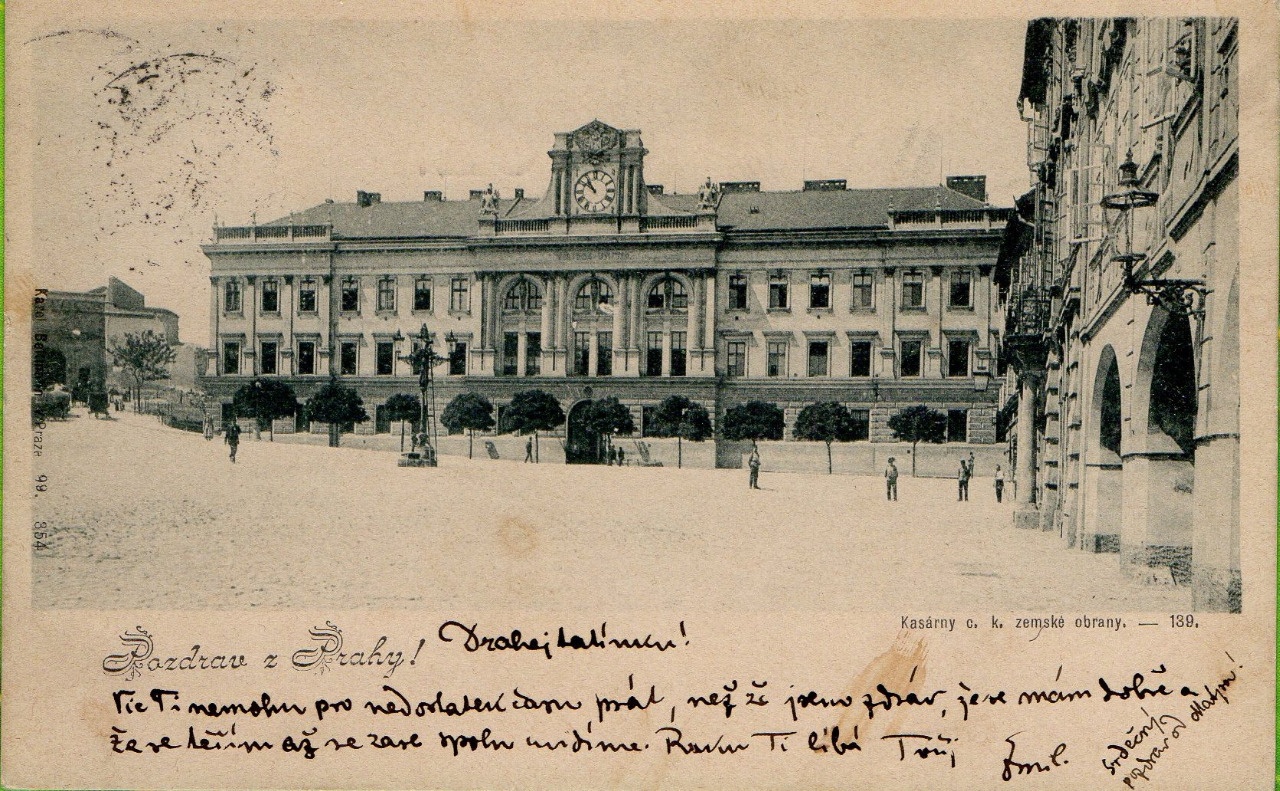 Praze 99. 854
Kasárny c. k. zemské obrany. — 139.
Pozdrav z Prahy! Drahej tatínku!
Víc Ti nemohu pro nedostatek času psát, než že jsem zdráv, že se mám dobře a
že se těším až se zase spolu uvidíme. Ruku Ti líbá Tvůj
Emil.
Srdečný
pozdrav od